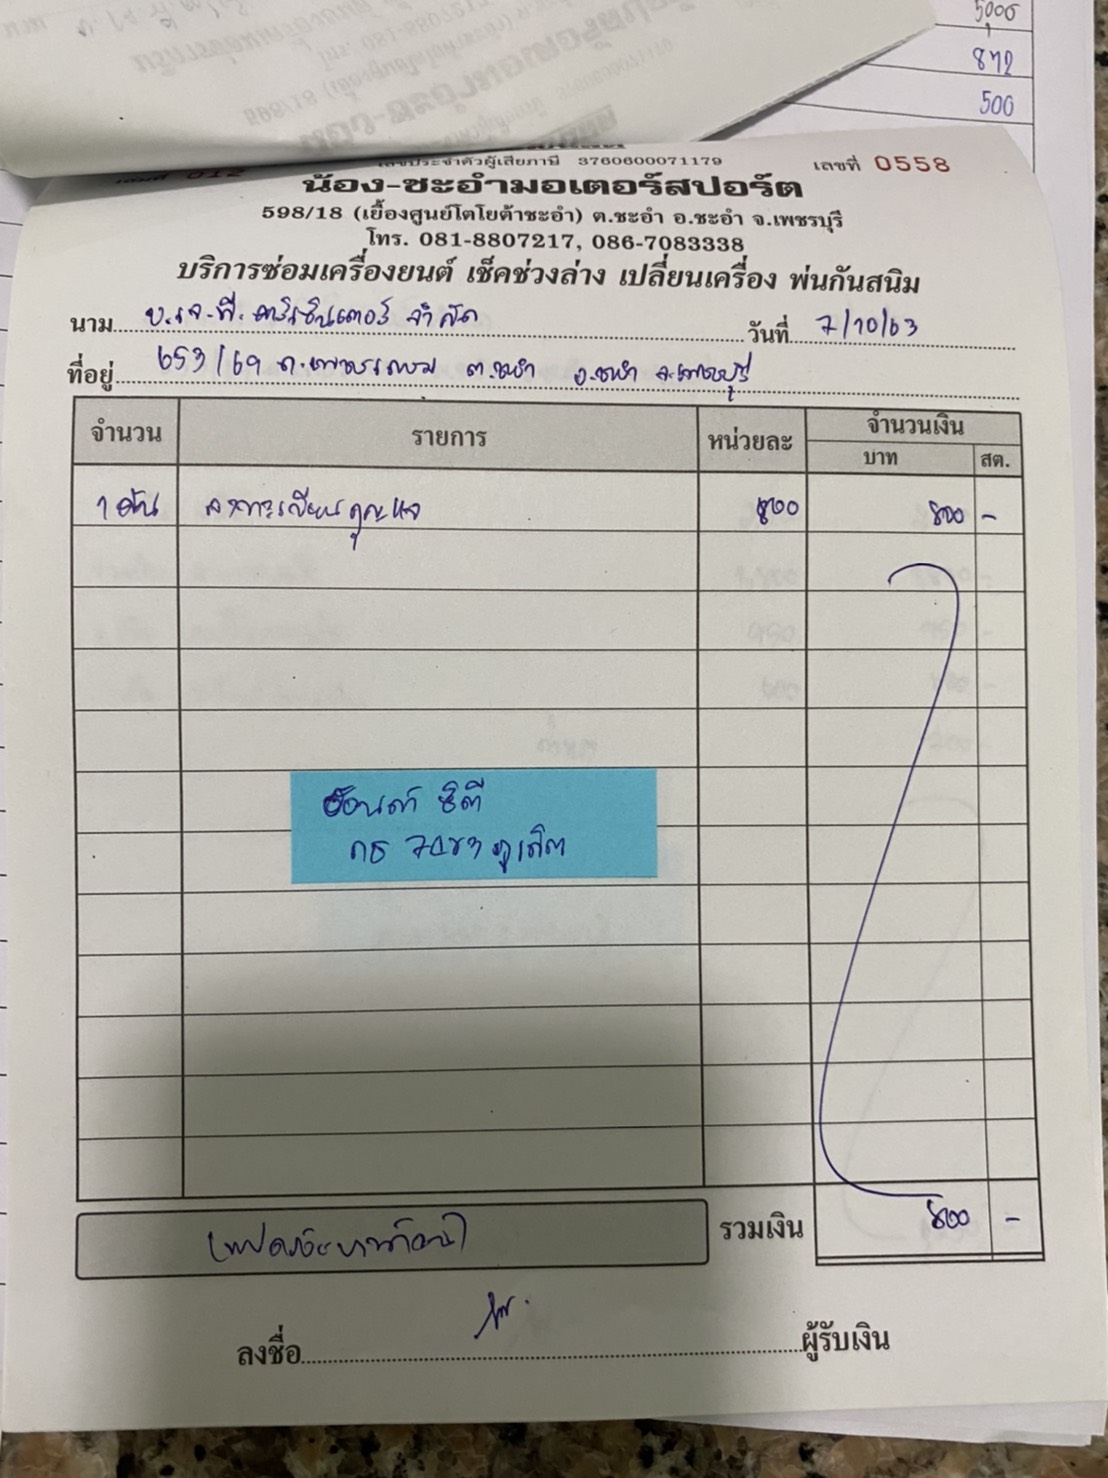 5,000
872
500
เลขประจำตัวผู้เสียภาษี 3760600071179
เล่มที่ 012 เลขที่ 0558
น้อง-ชะอำมอเตอร์สปอร์ต
598/18 (เยื้องศูนย์โตโยต้าชะอำ) ต.ชะอำ อ.ชะอำ จ.เพชรบุรี
โทร. 081-8807217, 086-7083338
บริการซ่อมเครื่องยนต์ เช็คช่วงล่าง เปลี่ยนเครื่อง พ่นกันสนิม
นาม บ.เจ.พี. จำกัด วันที่ 7/10/63
ที่อยู่ 653/69 ถ.เพชรเกษม ต.ชะอำ อ.ชะอำ จ.เพชรบุรี
จำนวน รายการ หน่วยละ จำนวนเงิน
บาท สต.
1 กุญแจ 800 800 -
ฮอนด้า ซิตี้
กธ ภูเก็ต
(แปดร้อยบาทถ้วน) รวมเงิน 800 -
ลงชื่อ ผู้รับเงิน